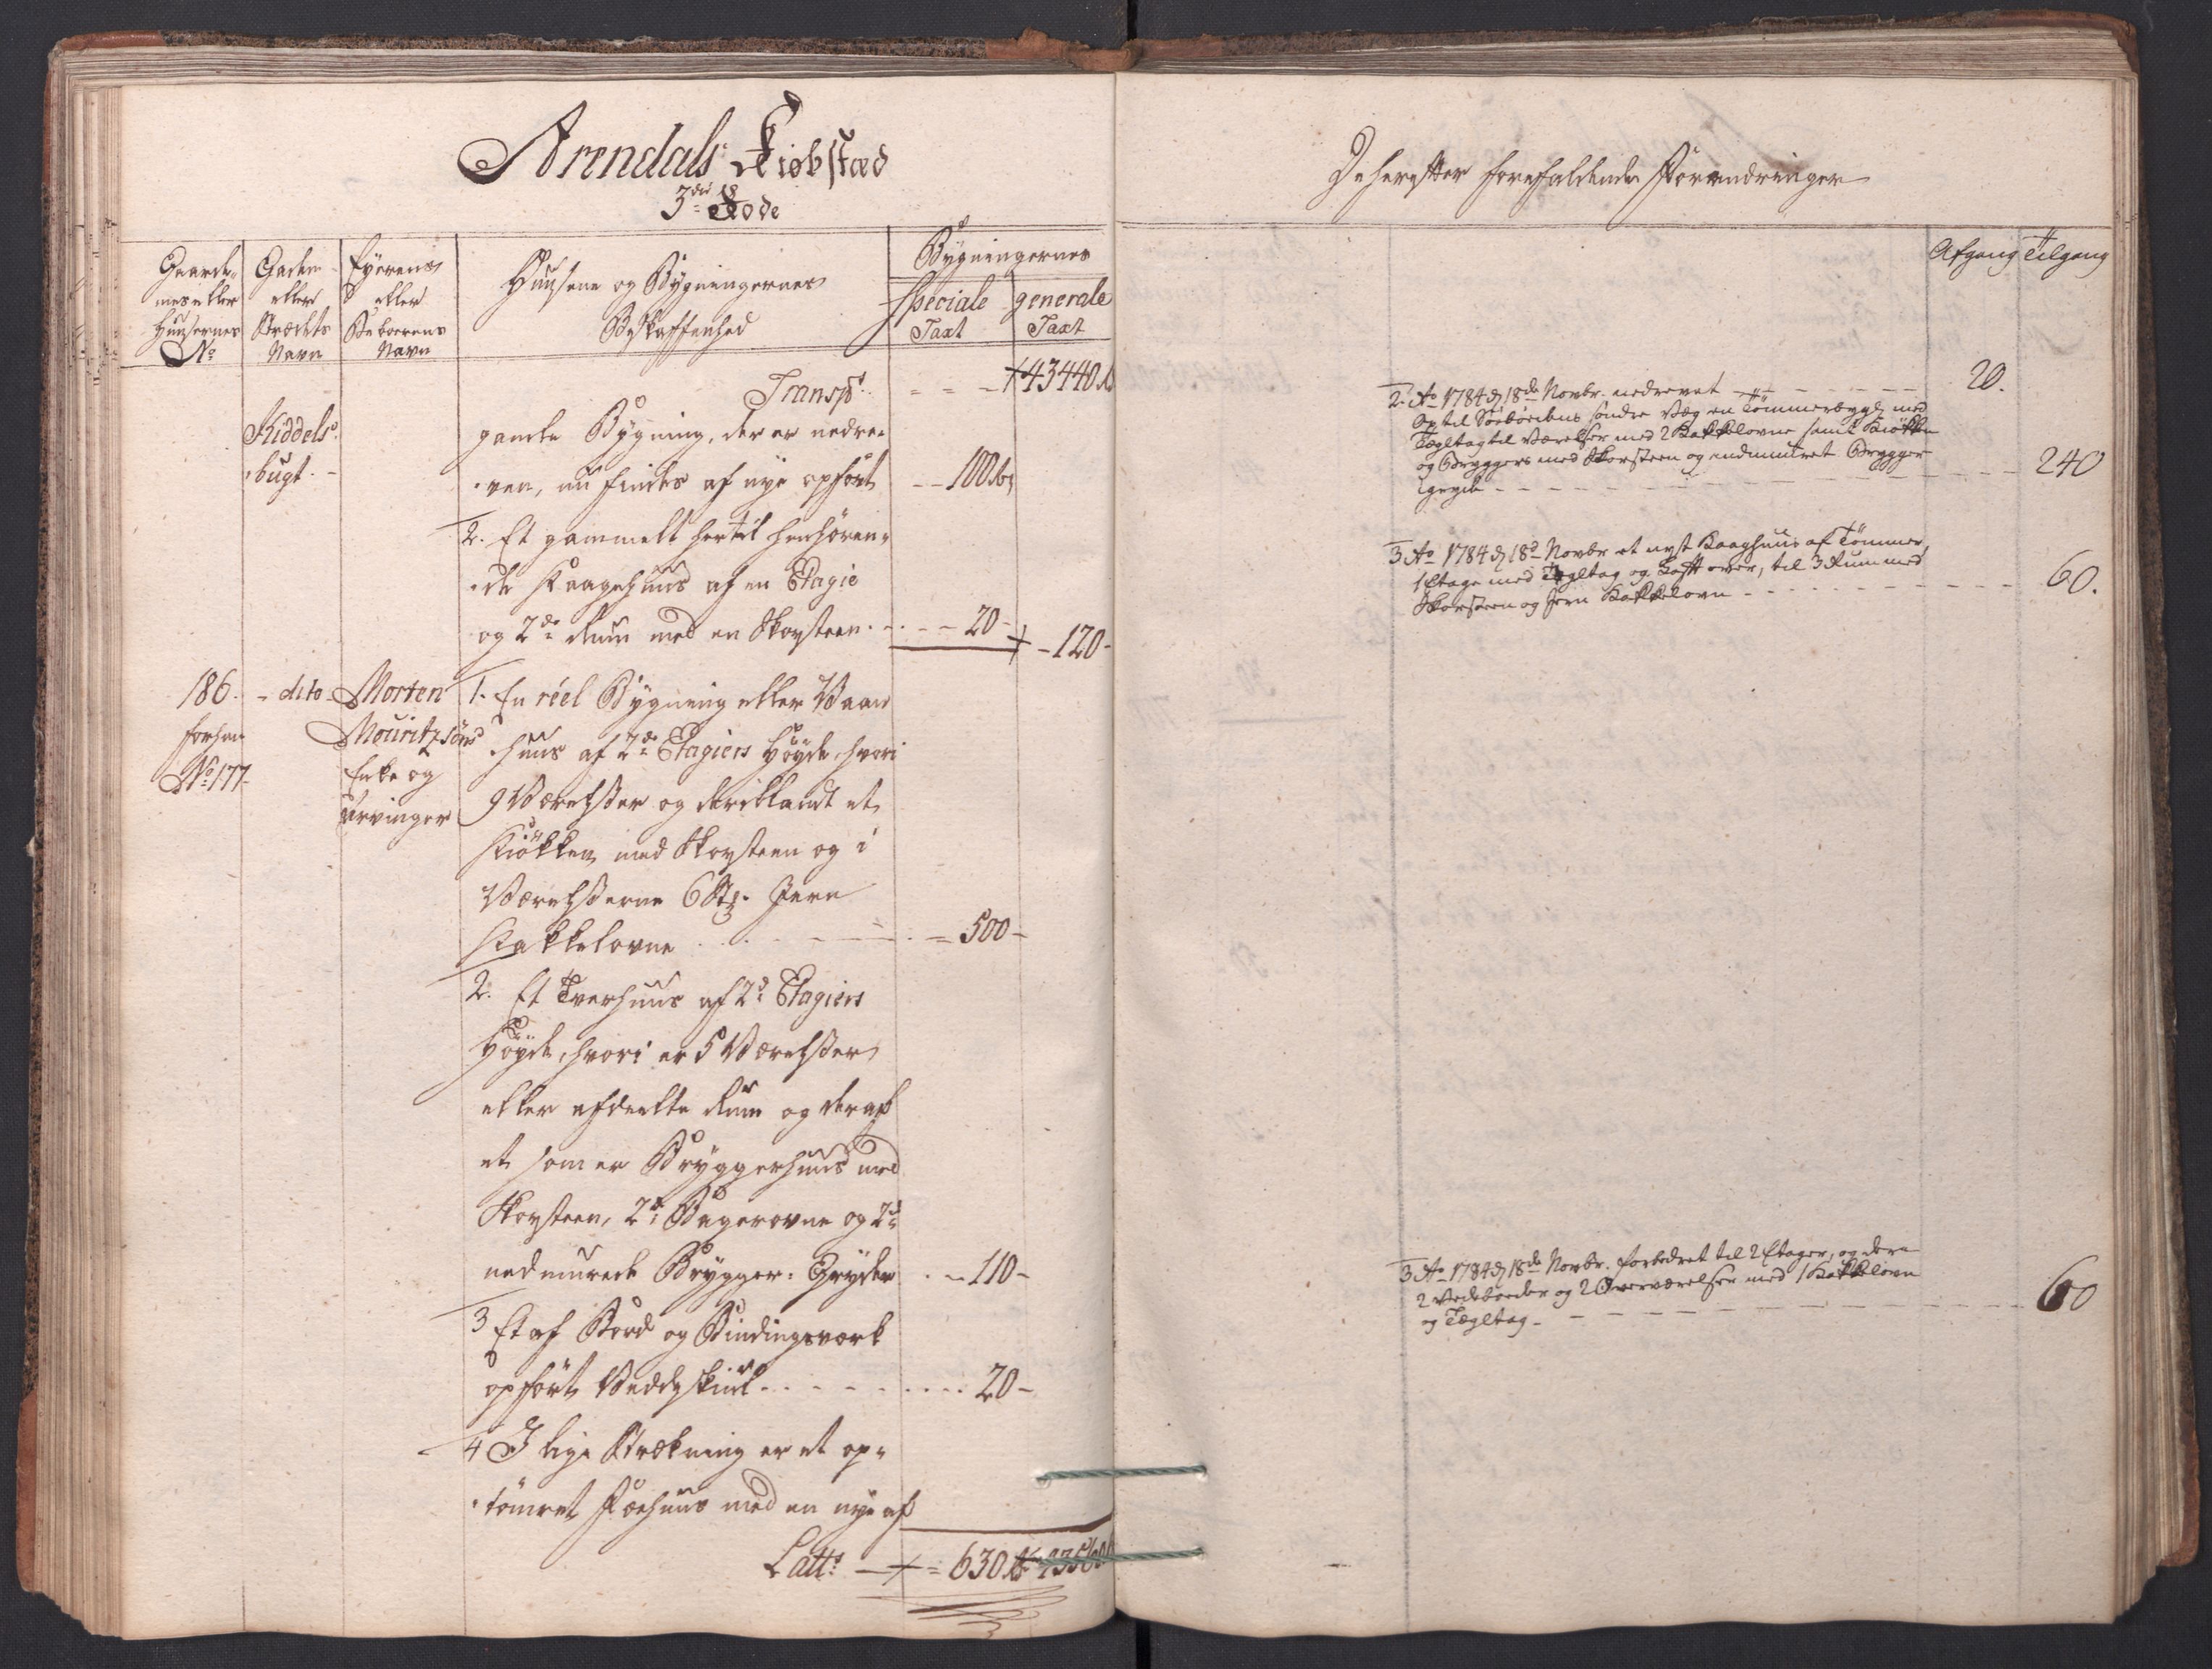 Arendals Kiøbstæd
3die Rode
Gaarde-
nes eller
Huusernes
No
Gadens
eller
Strædets
Navn
Eyerens
eller
Beboerens
Navn
Huusene og Bygningernes
Beskaffenhed
Bygningernes
Speciale
Taxt
generale
Taxt
Transpt. = = - 43440
Kiddels
bugt. -
gamle Bygning, der er nedre-
ven, nu findes af nye opført - - 100
2. Et gammelt hertil henhøren-
de Kaagehuus af en Etagie
og 2de Rum med en Skorsteen. - - 20 -
- 120 -
186. - dito - Morten
forhen
No 177
Mouritzøns
Enke og
Arvinger
1. En réel Bygning eller Vaan
huus af 2de Etagiers Høyde, hvori
9 Værelsser og deriblandt et
Kiøkken med Skorsteen og i
Værelsserne 6 Stk. Jern
Kakkelovne . . . - - - = 500 -
2. Et Tverhuus af 2de Etagiers
Høyde, hvori er 5 Værelsser
eller afdeelte Rum og deraf
et som er Bryggerhuus med
Skorsteen, 2de Bagerovne og 2de
nedmurede Brygger-Gryder . - 110 -
3 Et af Bord og Bindingsværk
opført Vedskiul . . . - - . . . 20 -
4 I lige Strækning er et op-
tømret Fæehuus med en nye af
Latt. = 630 43560
Dehereffter forefaldende Forandringer
Afgang Tilgang
2. Ao 1784 d. 18de Novbr. nedrevet - - - - - 20.
Op til Søeboedens søndre Væg en Tømmerbygn. med
Tegltag til Værelser med 2 Kakkelovne samt Kiøkken
og Bryggers med Skorsteen og indmuuret Brygger
gryde - - - - - - - - - 240
3 Ao 1784 d. 18de Novbr et nyt Kaaghuus af Tømmer,
1 Etage med Tegltag og Loft over, til 3 Rum med
Skorsteen og Jern Kakkelovn - - - - - 60.
3 Ao 1784 d. 18de Novbr. forbedret til 2 Etager, og dere
2 Vedeboeder og 2 Overværelser med 1 Kakkelovn
og Tegltag - - - - - - - 60